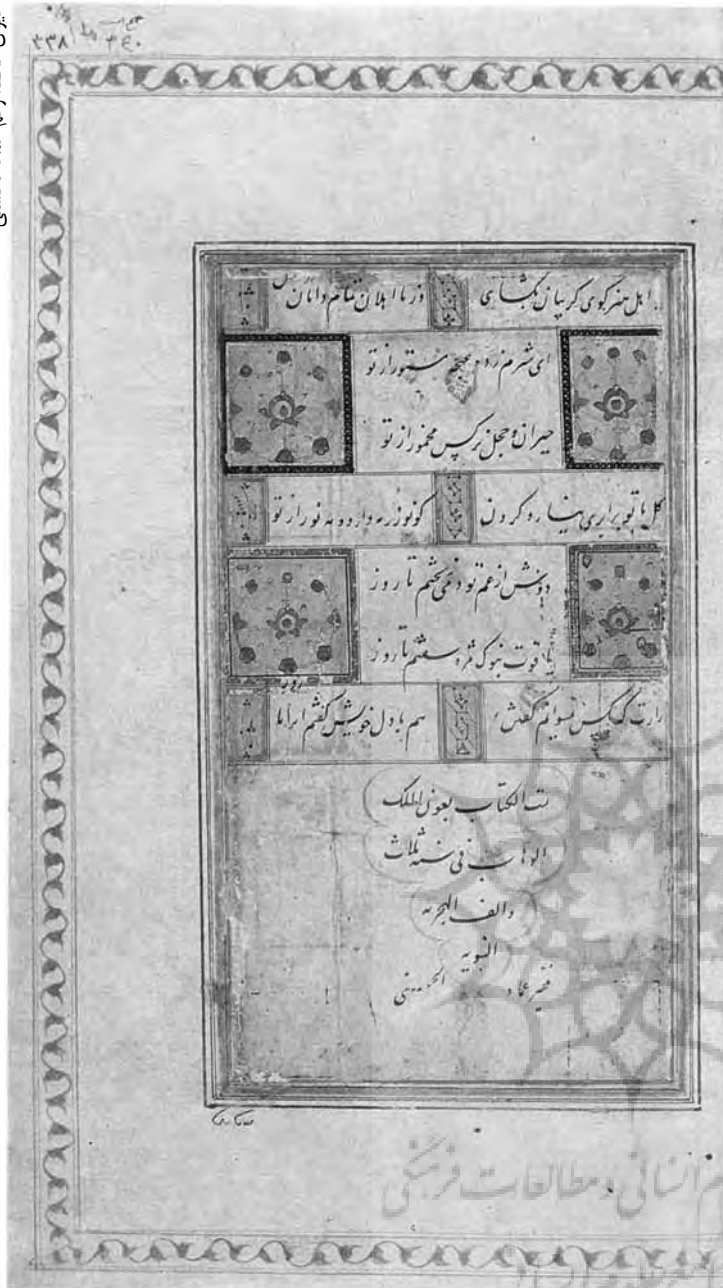 ۳۳۸ ۳۴۰
اهل هنر کوی کریبان بکشای وز نااهلان تمام دامان
ای شرم زده غنچه مستور از تو
حیران و خجل نرکس مخمور از تو
کل با تو برابری نیارد کردن کو نور ز مه دارد و مه نور از تو
دوش از غم تو دمی نخفتم تا روز
یاقوت بنوک مژه سفتم تا روز
رازت که بکس هم با دل خویش کفتم تا
روز
تمت الکتاب بعون الملک
الوهاب فی سنه ثلاث
والف الهجریه
النبویه
فقیر عماد الحسینی
انسانی و مطالعات فرهنگی